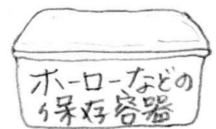 ホーローなどの
保存容器